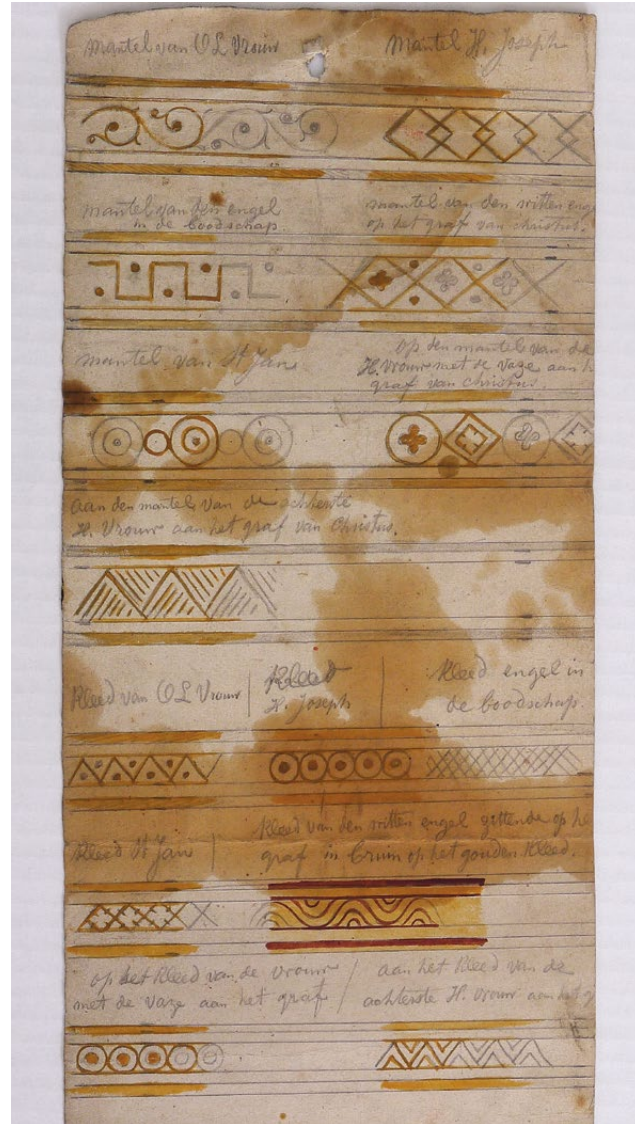 mantel van OL Vrouw
Mantel H. Joseph
mantel van den engel
in de boodschap
mantel van den witten enge
op het graf van christus.
mantel van St Jan
op den mantel van de
H. Vrouw met de vaze aan h
graf van christus.
aan den mantel van de achterste
H. Vrouw aan het graf van Christus.
Kleed van OL Vrouw
Kleed
H. Joseph
Kleed engel in
de boodschap.
Kleed St Jan
Kleed van den witten engel zittende op he
graf in bruin op het gouden Kleed.
op het Kleed van de vrouw
met de vaze aan het graf
aan het Kleed van de
achterste H. vrouw aan het g